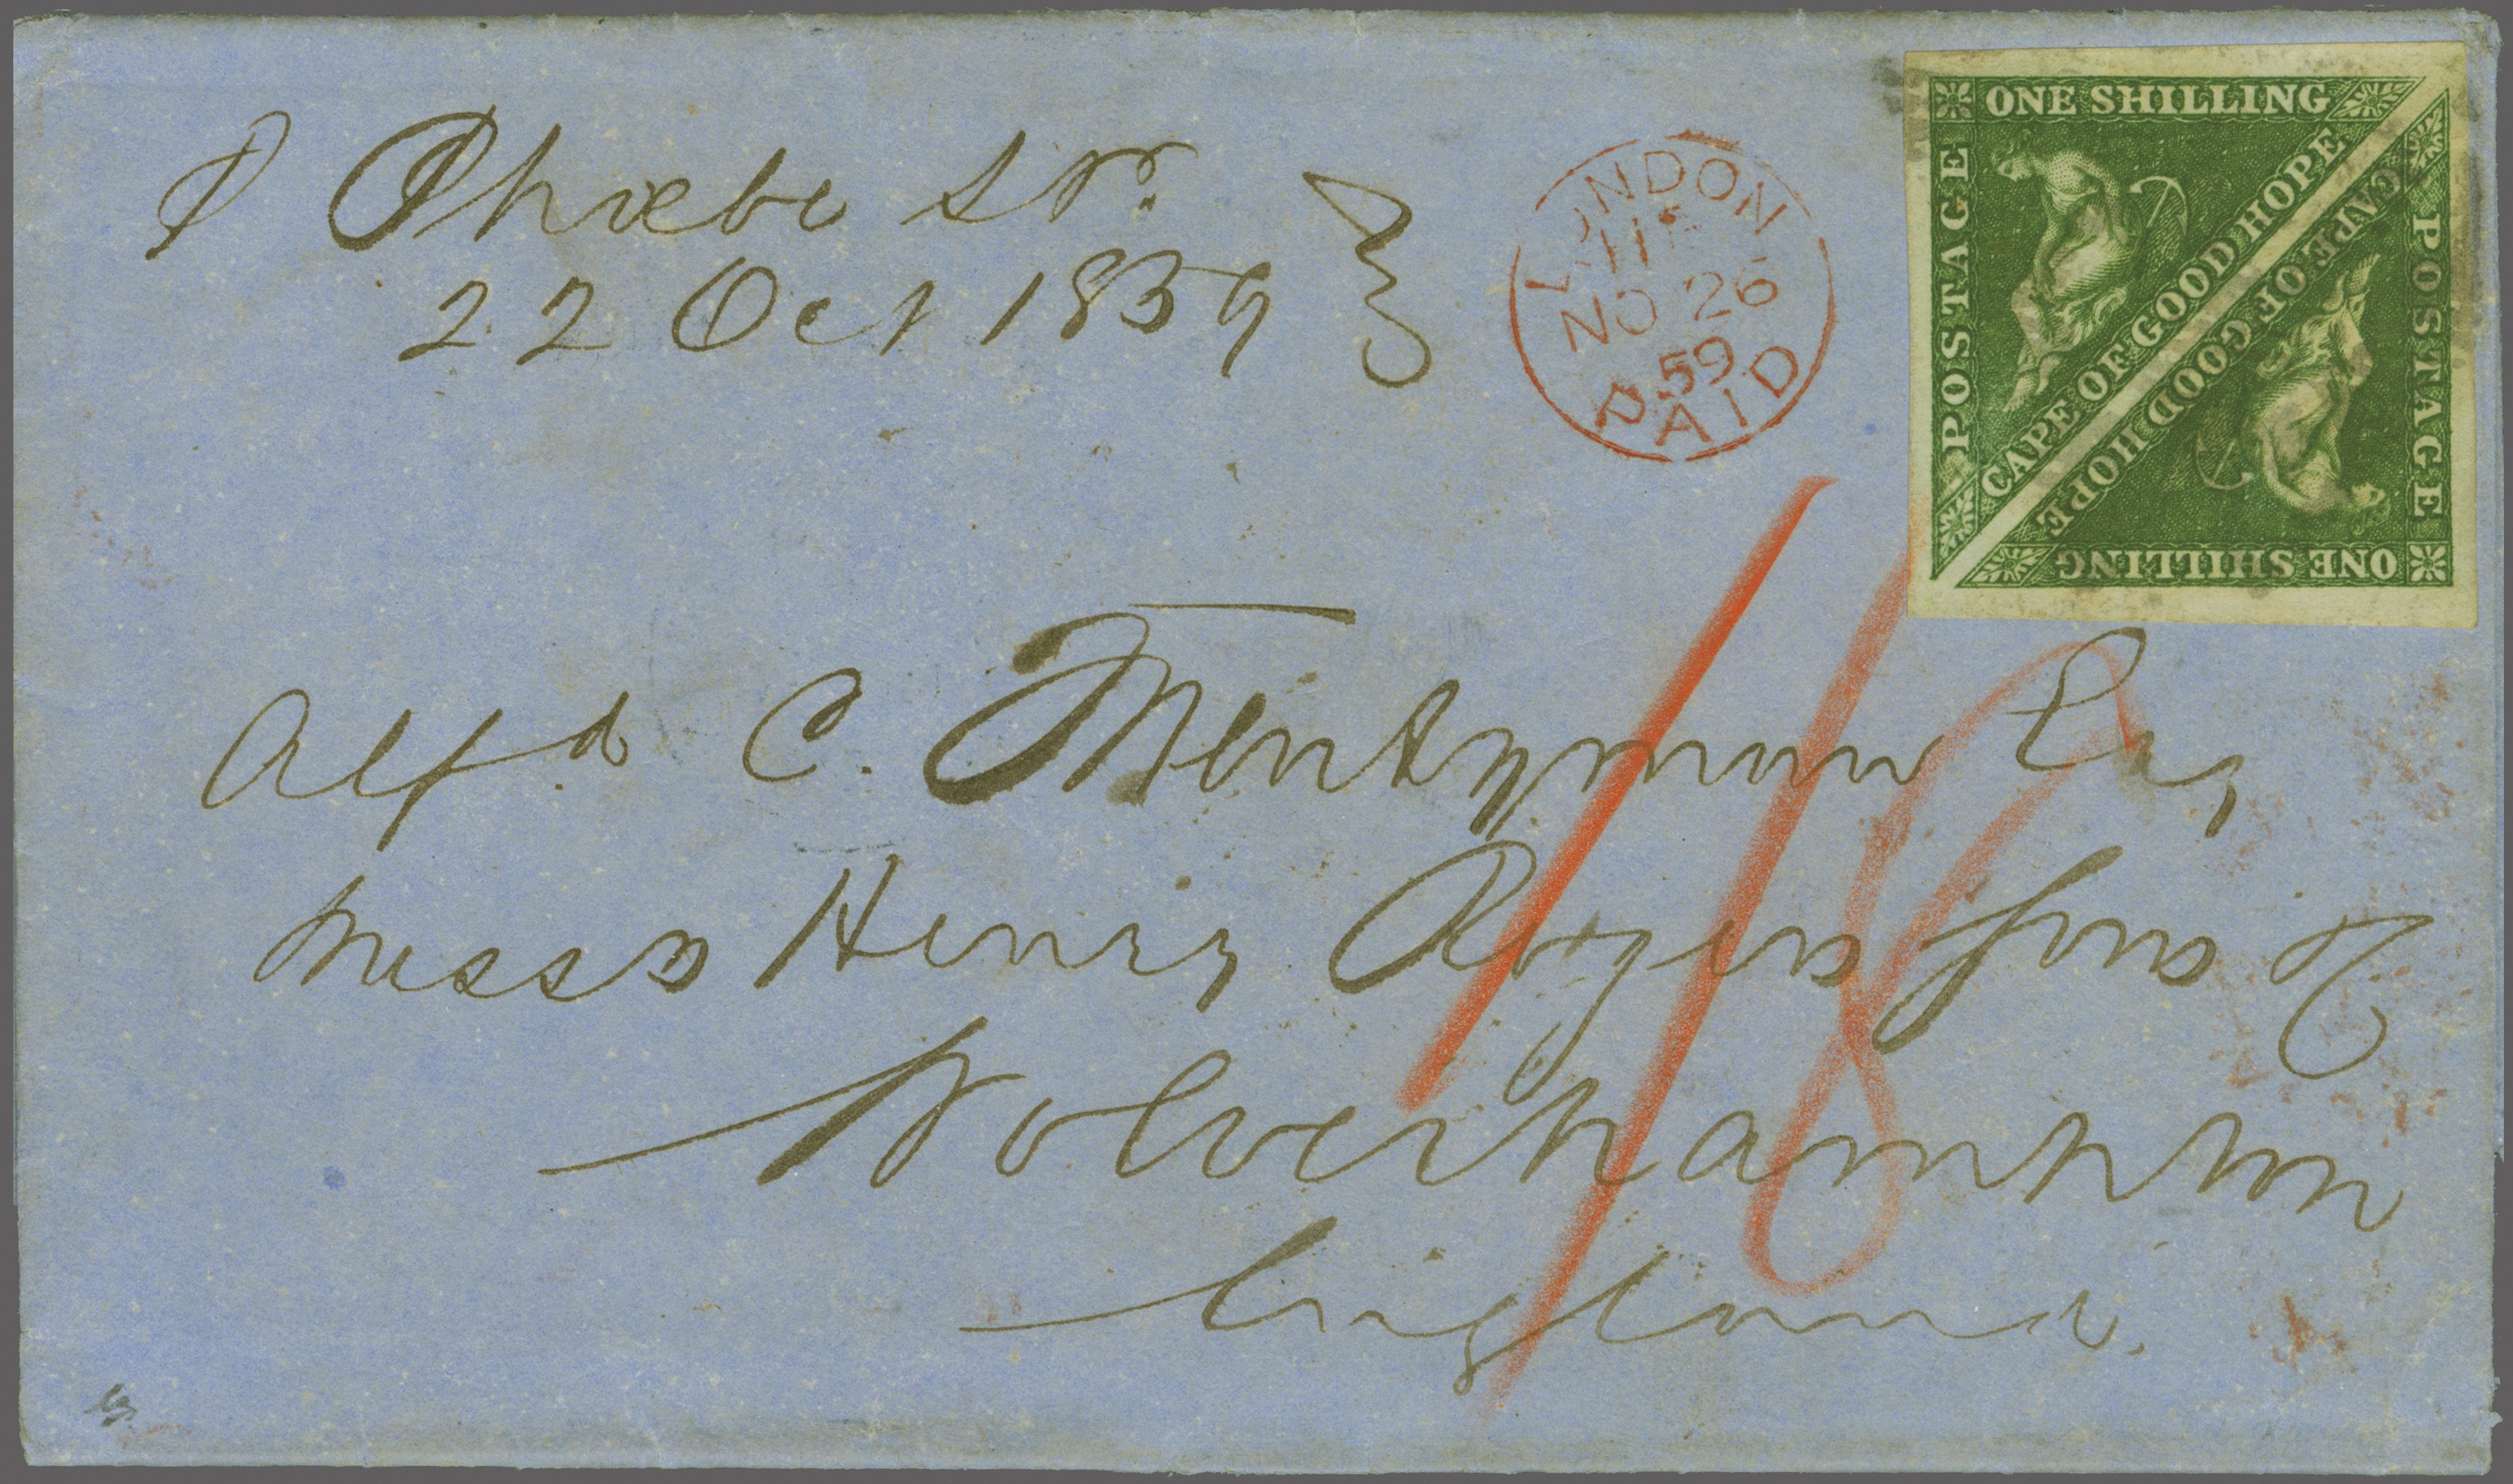 P Phœbe Str.
22 Oct 1859
LONDON
NO 26
59
PAID
ONE SHILLING
POSTAGE
CAPE OF GOOD HOPE
CAPE OF GOOD HOPE
POSTAGE
ONE SHILLING
Alfd C. Esq
Messrs Henry Rogers Sons & Co
Wolverhampton
England.